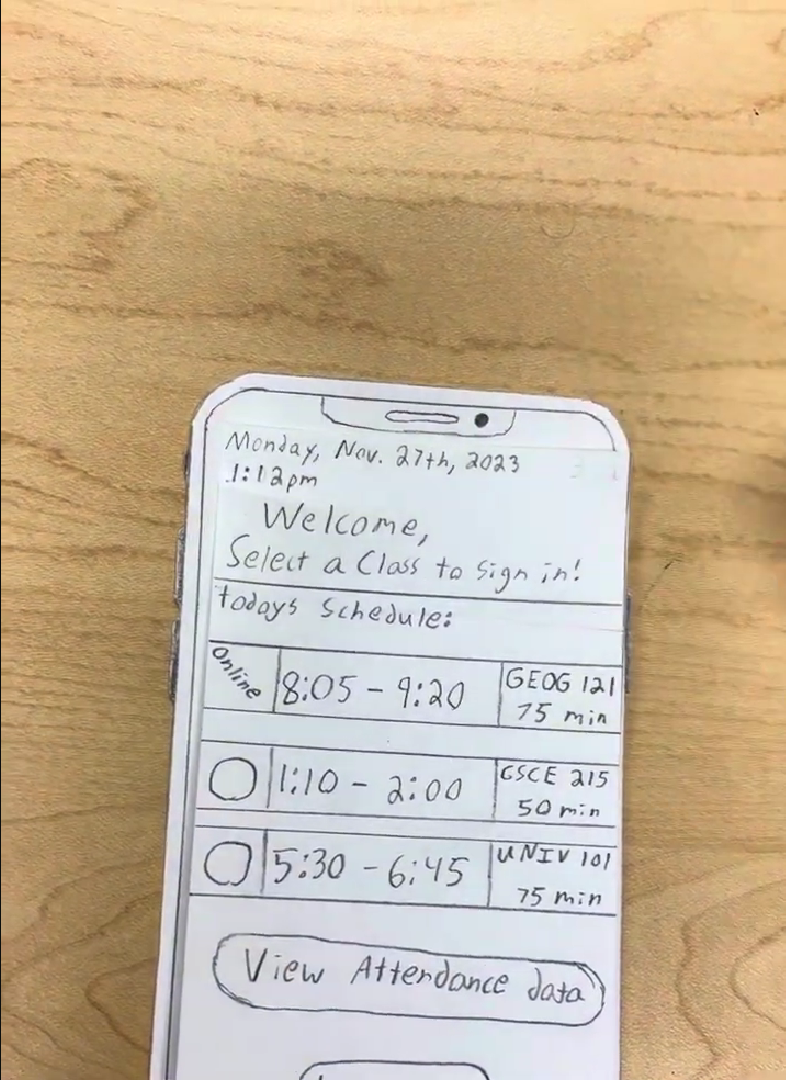 Monday, Nov. 27th, 2023
1:12pm
Welcome,
Select a Class to sign in!
todays schedule:
online
8:05 - 9:20
GEOG 121
75 min
1:10 - 2:00
CSCE 215
50 min
5:30 - 6:45
UNIV 101
75 min
View Attendance data